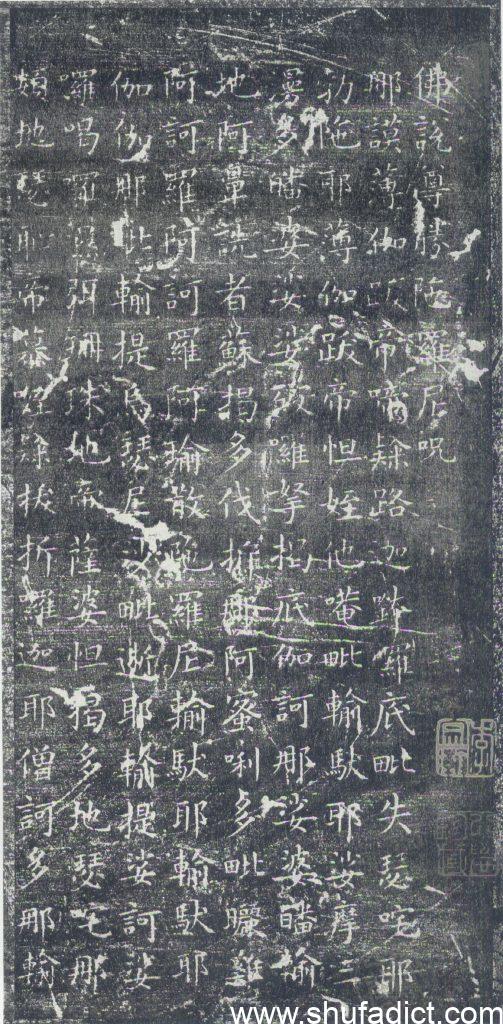 佛說尊勝陁羅尼呪
那謨薄伽跋帝啼隸路迦鉢羅底毗失瑟咤耶
勃陁耶薄伽跋帝怛姪他唵毗輸馱耶娑摩三
曼多皤婆娑娑破囉拏揭底伽訶那娑婆皤輸
地阿鼻詵者蘇揭多伐折那阿蜜唎多毗曬雞
阿訶羅阿訶羅阿瑜散陁羅尼輸馱耶輸馱耶
伽伽那毗輸提烏瑟尼沙毗逝耶輸提娑訶娑
囉喝囉濕弭珊珠地帝薩婆怛揭多地瑟咤那
頞地瑟恥帝慕姪隸拔折羅迦耶僧訶多那輸
www.shufadict.com